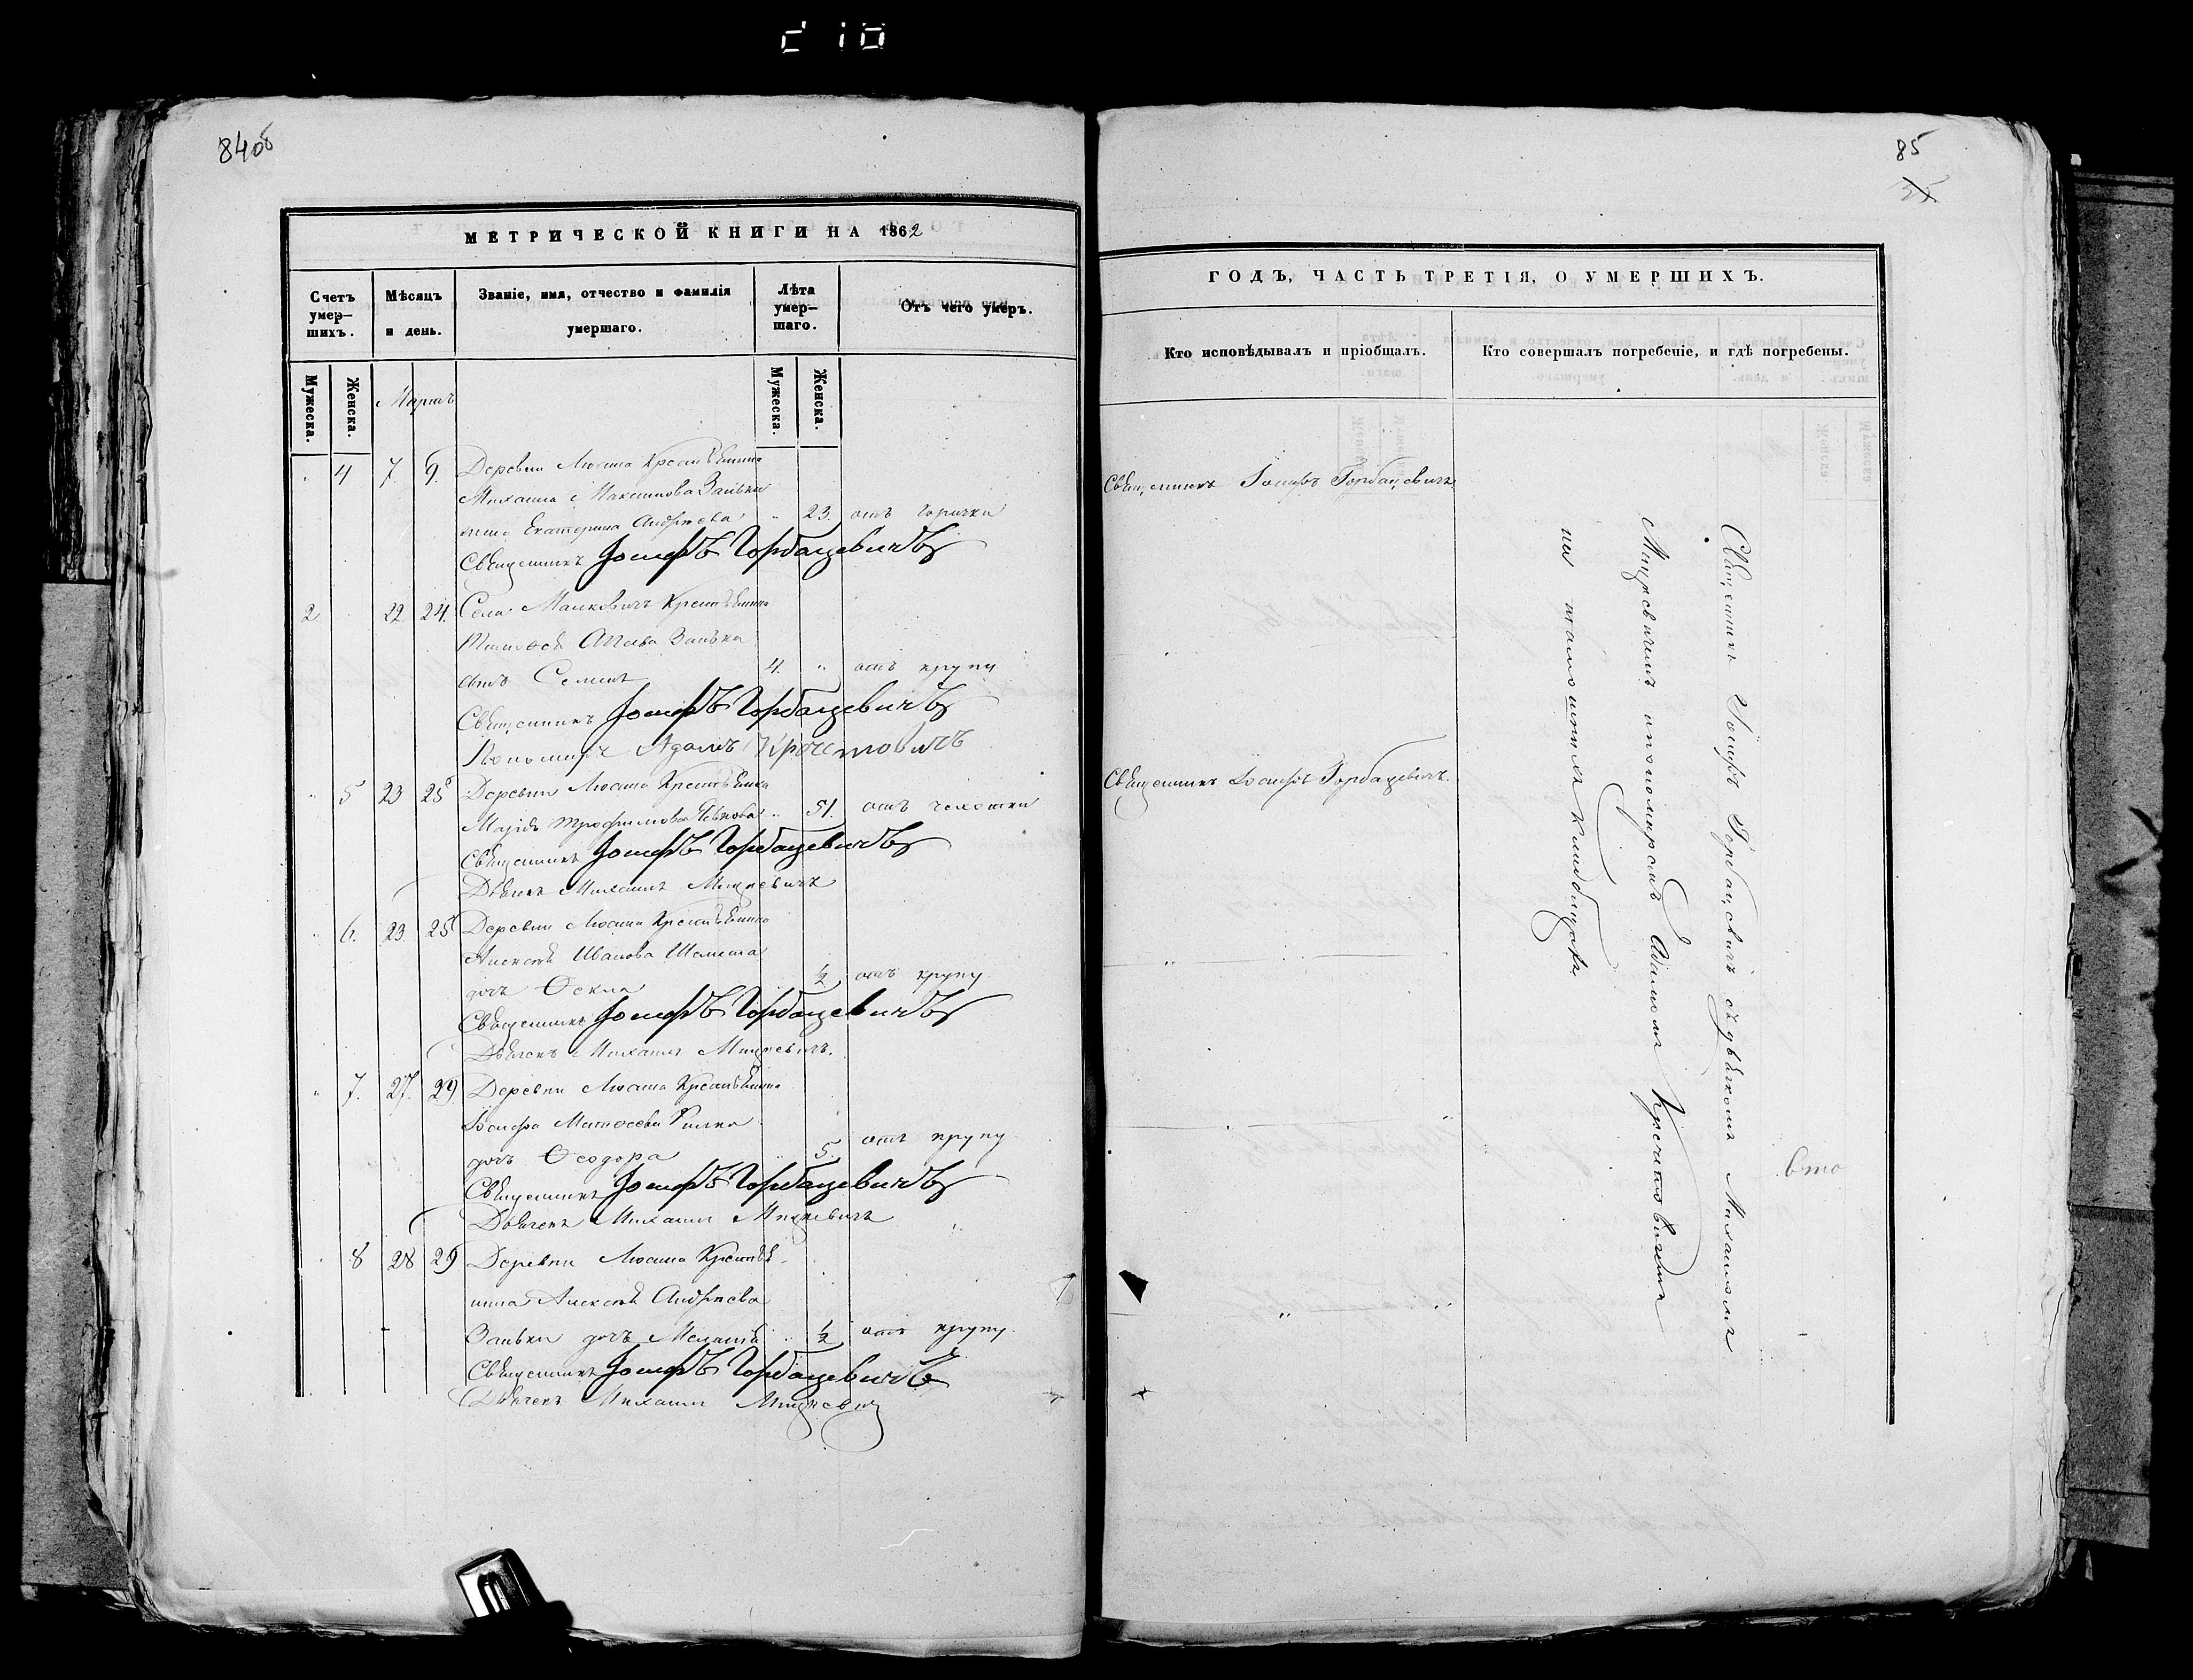 84об
МЕТРИЧЕСКОЙ КНИГИ НА 1862
Счетъ умер-шихъ.
Мѣсяцъ и день.
Званіе, имя, отчество и фамилія умершаго.
Лѣта умер-шаго.
Отъ чего умеръ.
Мужеска.
Женска.
Мартъ
Мужеска.
Женска.
4 7. 9. Деревни Люсина Крестьянина
Михаила Максимова Заньки
жена Екатерина Андреева " 23. отъ горячки
Священникъ Іосифъ Горбацевичъ
2 22 24. Села Малковичъ Крестьянина
Заньки
сынъ Семенъ 4. " отъ крупу
Священникъ Іосифъ Горбацевичъ
Пономарь Адамъ Кречетовичъ
" 5 23 25 Деревни Люсина Крестьянина
Трофимова " 51. отъ чехотки
Священникъ Іосифъ Горбацевичъ
Дьячекъ Михаилъ Мицкевичъ
" 6. 23. 25 Деревни Люсина Крестьянина
Алексѣя Иванова Шемета
дочь Ѳекла 1/2 отъ крупу
Священникъ Іосифъ Горбацевичъ
Дьячекъ Михаилъ Мицкевичъ.
" 7. 27. 29 Деревни Люсина Крестьянина
Іосифа Матѳеева
дочь Ѳеодора 5. отъ крупу
Священникъ Іосифъ Горбацевичъ
Дьячекъ Михаилъ Мицкевичъ
8 28 29 Деревни Люсина Крестья-
нина Алексѣя Андреева
Заньки дочь " 1/2 отъ крупу.
Священникъ Іосифъ Горбацевичъ
Дьячекъ Михаилъ Мицкевич
85
ГОДЪ, ЧАСТЬ ТРЕТІЯ, О УМЕРШИХЪ.
Кто исповѣдывалъ и пріобщалъ.
Кто совершалъ погребеніе, и гдѣ погребены.
Священникъ Іосифъ Горбацевичъ
Священникъ Іосифъ Горбацевичъ.
Священникъ Іосифъ Горбацевичъ съ дьячкомъ Михаиломъ
Мицкевичемъ и пономаремъ Адамомъ Кречетовичемъ
на кладбищахъ